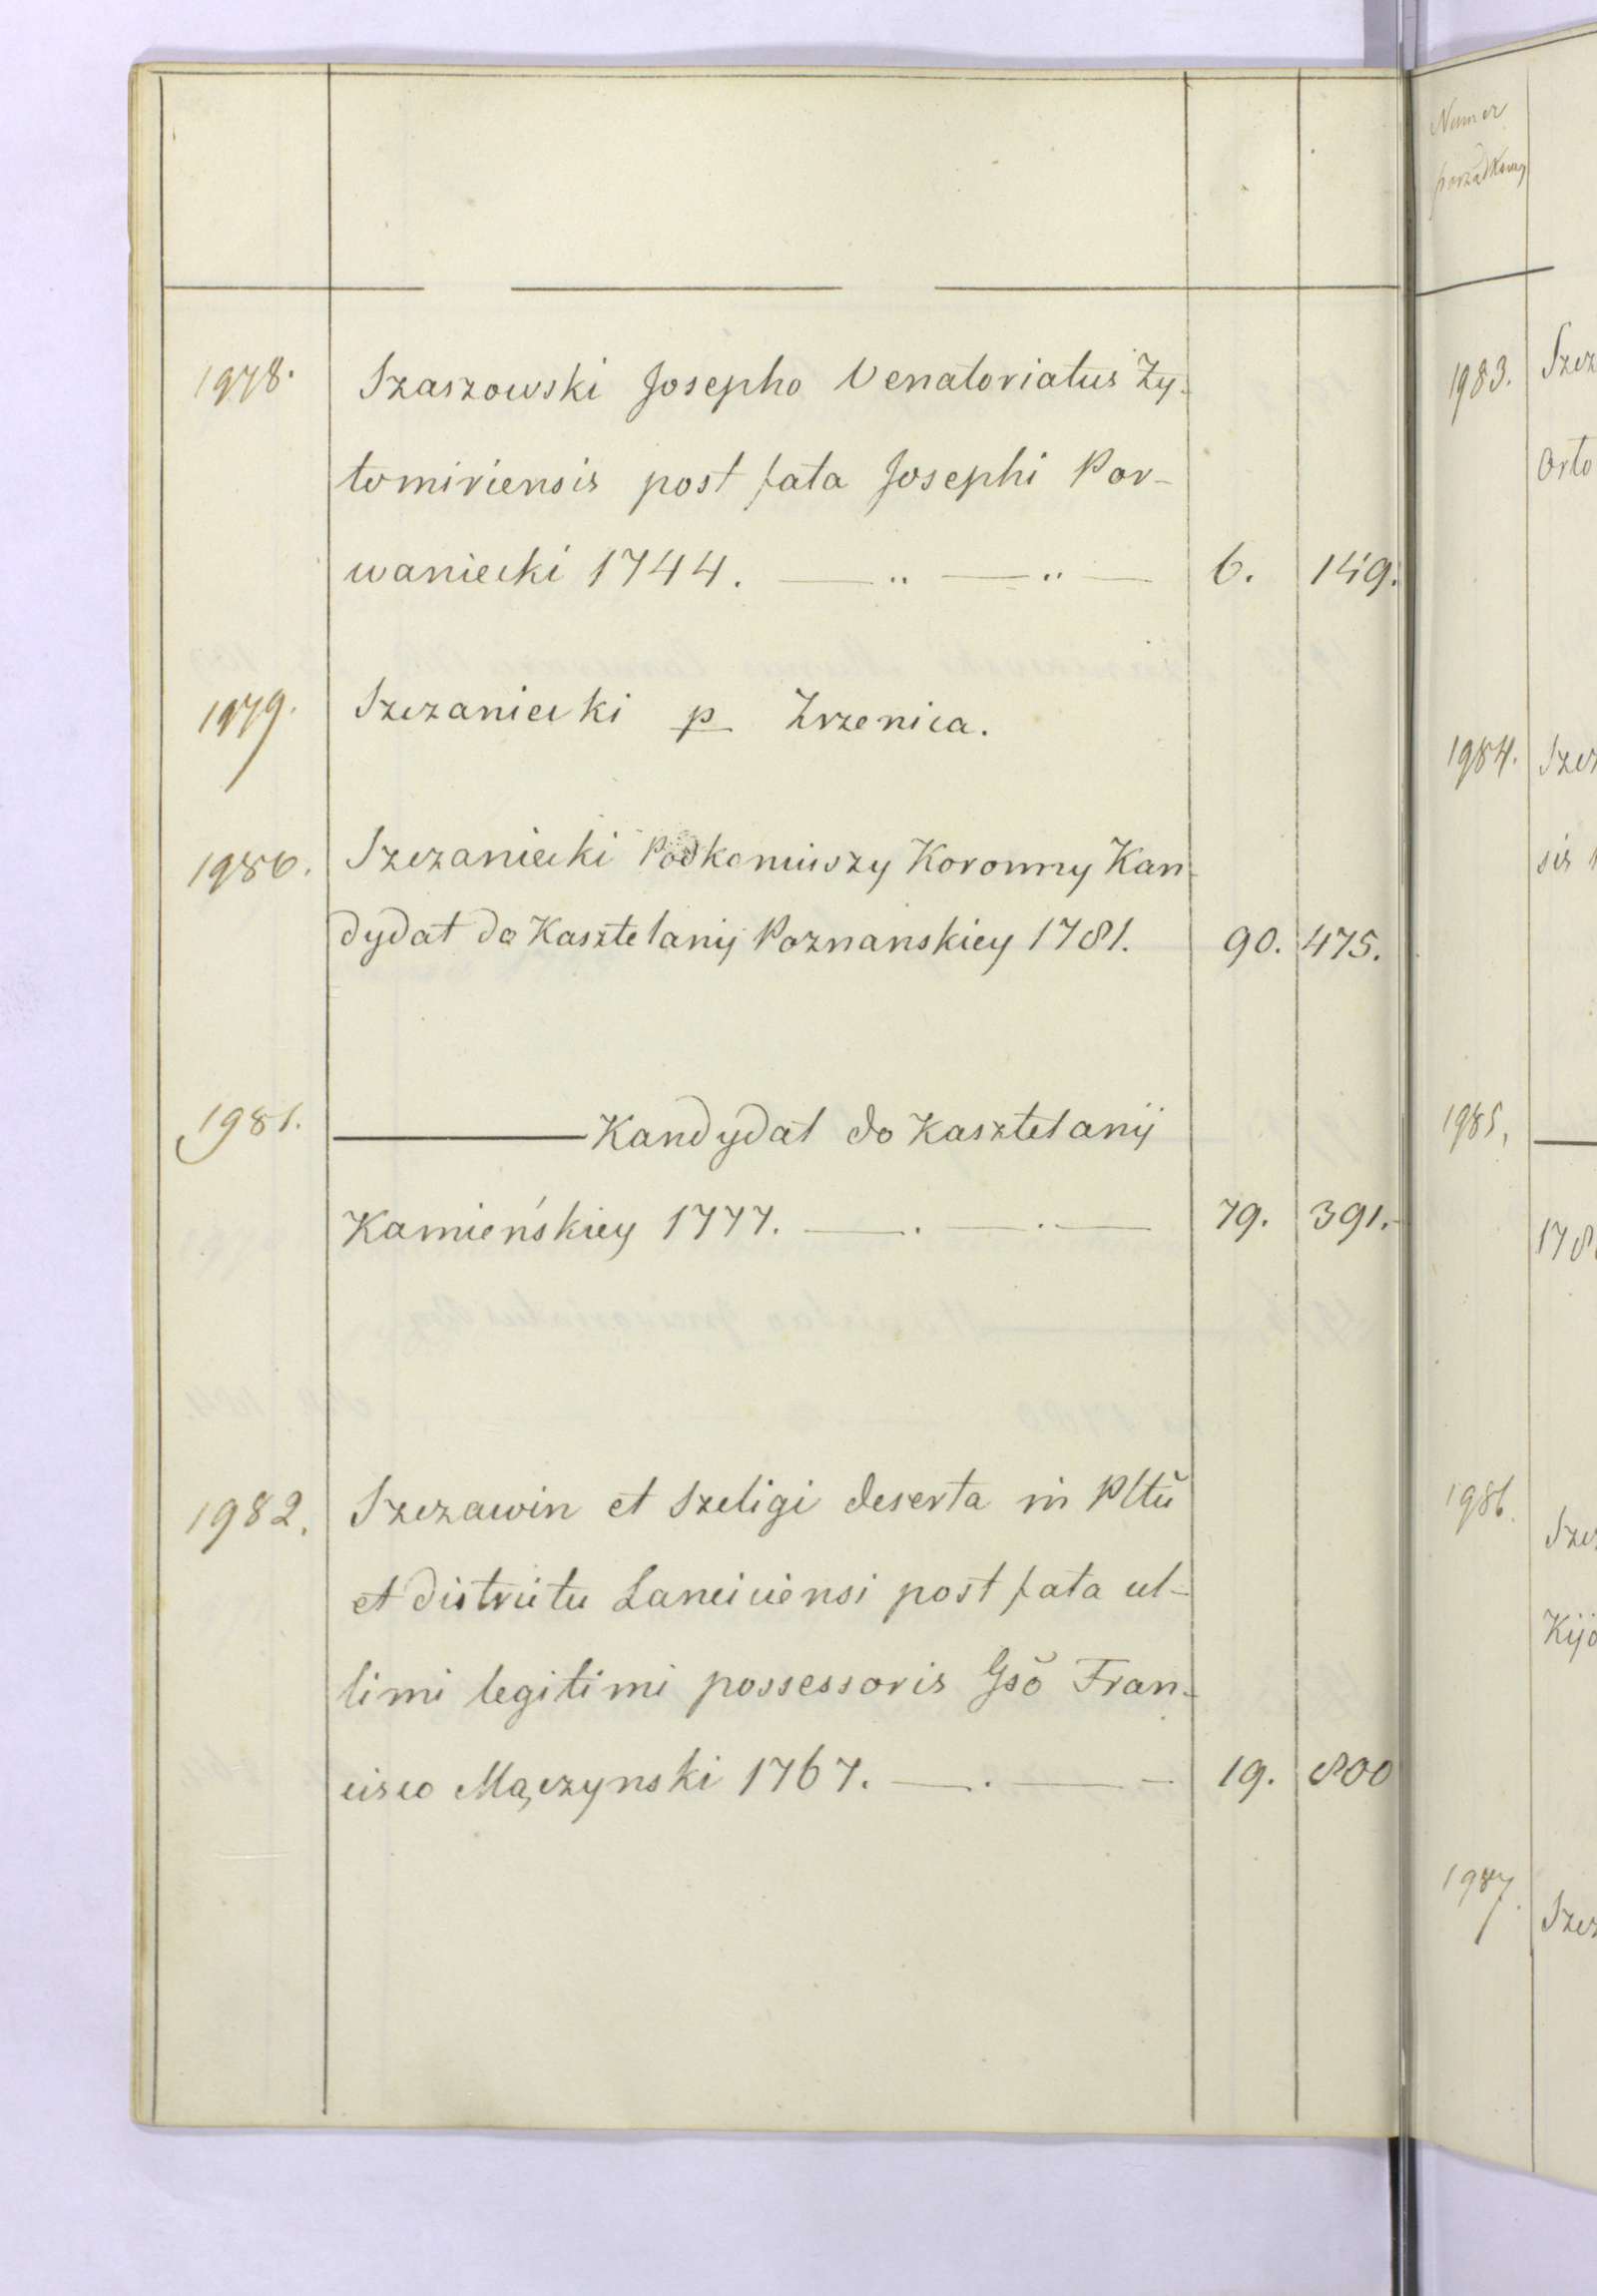 1978. Szaszowski Josepho Venatoriatus Zy-
tomiriensis post fata Josephi Por-
waniecki 1744. — „ — „ — 6. 149.
1979. Szczaniecki p Zrzenica.
1980. Szczaniecki Podkoniuszy Koronny Kan-
dydat do Kasztelanij Poznanskiey 1781. 90. 475.
1981. ——— Kandydat do Kasztelanij
Kamieńskiey 1777. — . — . — 79. 391.
1982. Szczawin et Szeligi deserta in Pltũ
et districtu Lanciciensi post fata ul-
timi legitimi possessoris Gsõ Fran-
cisco Mączynski 1767. — . — – 19. 800
Numer
porządkowy
1983. Szcz
Orto
1984. Szcz
sis
1985. —
178
1986. Szcz
Kijo
1987. Szcz